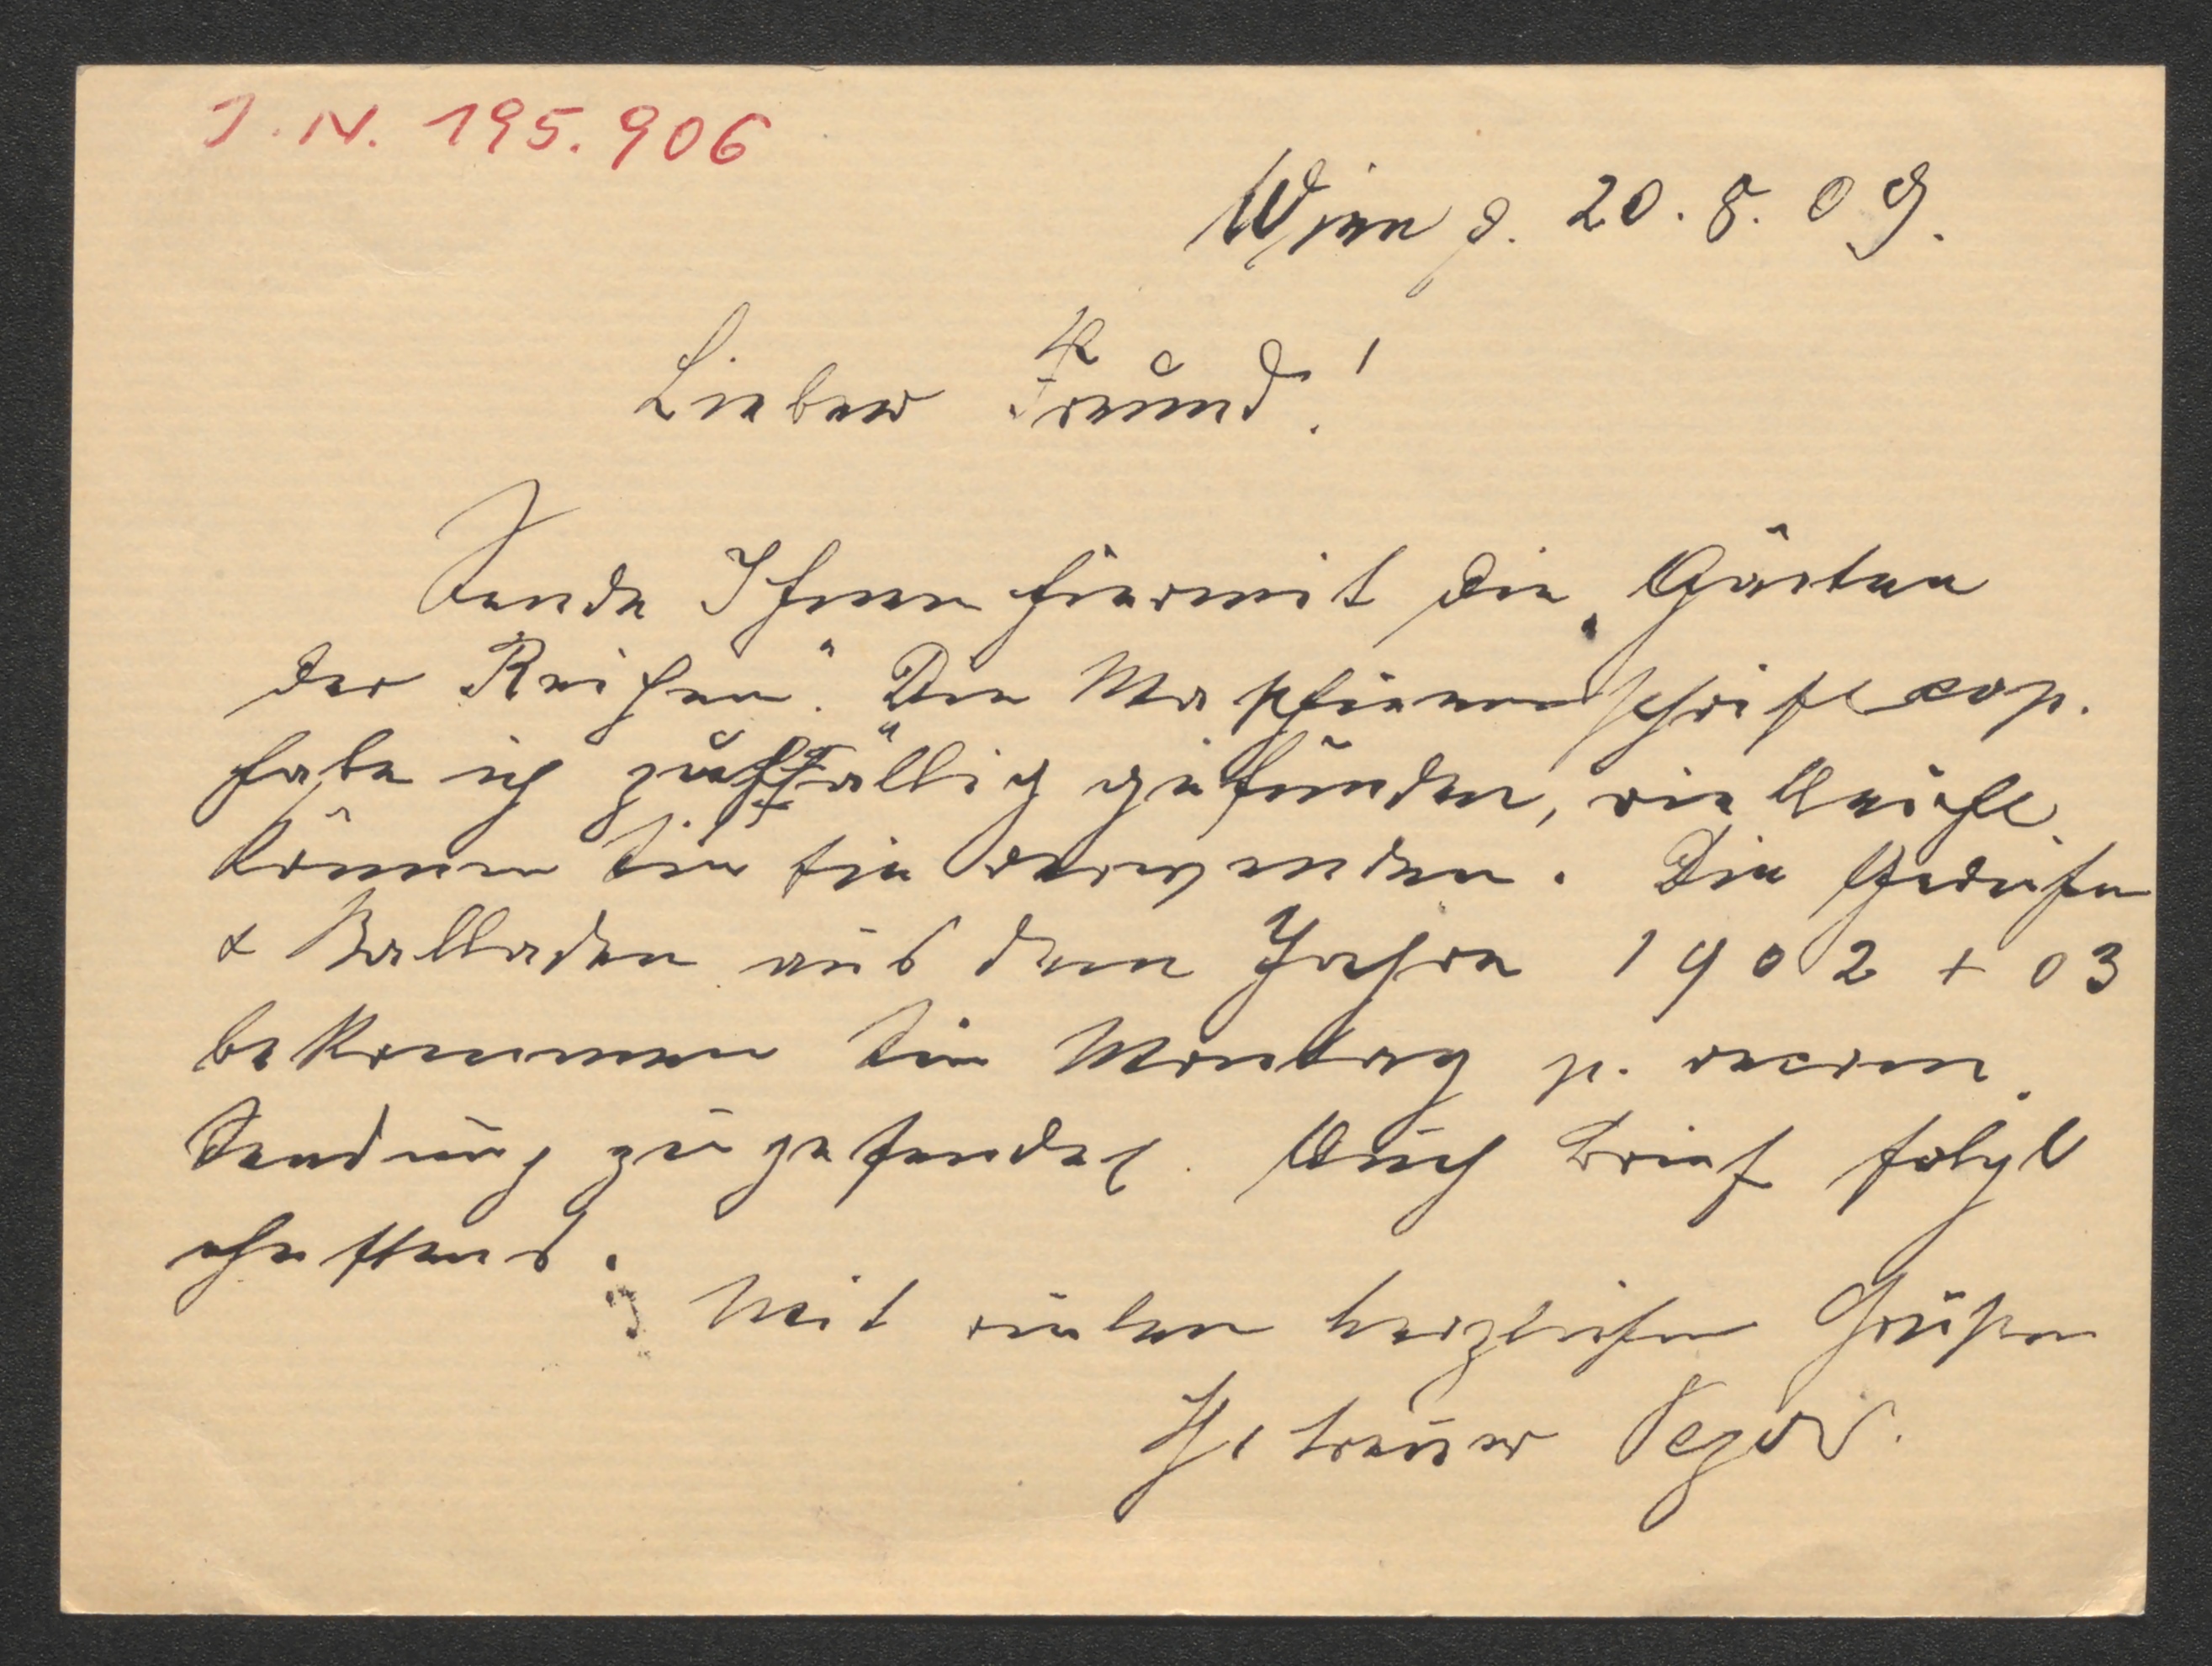 J. N. 195.906
Wien d. 20. 8. 09.
Lieber Freund!
Sende Ihnen hiermit die „Gärten
der Reichen". Die Maschinenschriftkop.
habe ich zuffällig gefunden, vielleicht
können Sie sie verwenden. Die Gedichte
& Balladen aus dem Jahre 1902 + 03
bekommen Sie Montag p. recom.
Sendung zugesendet. Auch Brief folgt
ehestens.
Mit vielen herzlichen Grüßen
Ihr treuer